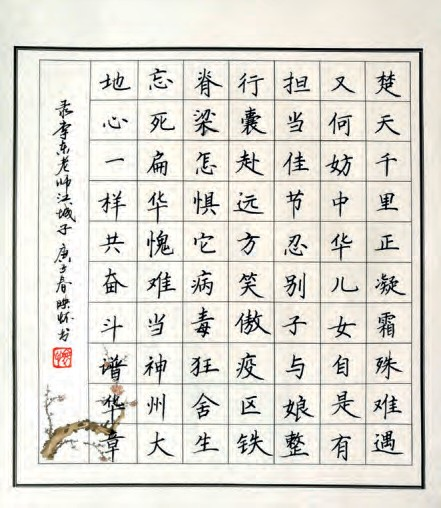 楚天千里正凝霜殊难遇
又何妨中华儿女自是有
担当佳节忍别子与娘整
行囊赴远方笑傲疫区铁
脊梁怎惧它病毒狂舍生
忘死扁华愧难当神州大
地心一样共奋斗谱华章
录李东老师江城子 庚子春映怀书